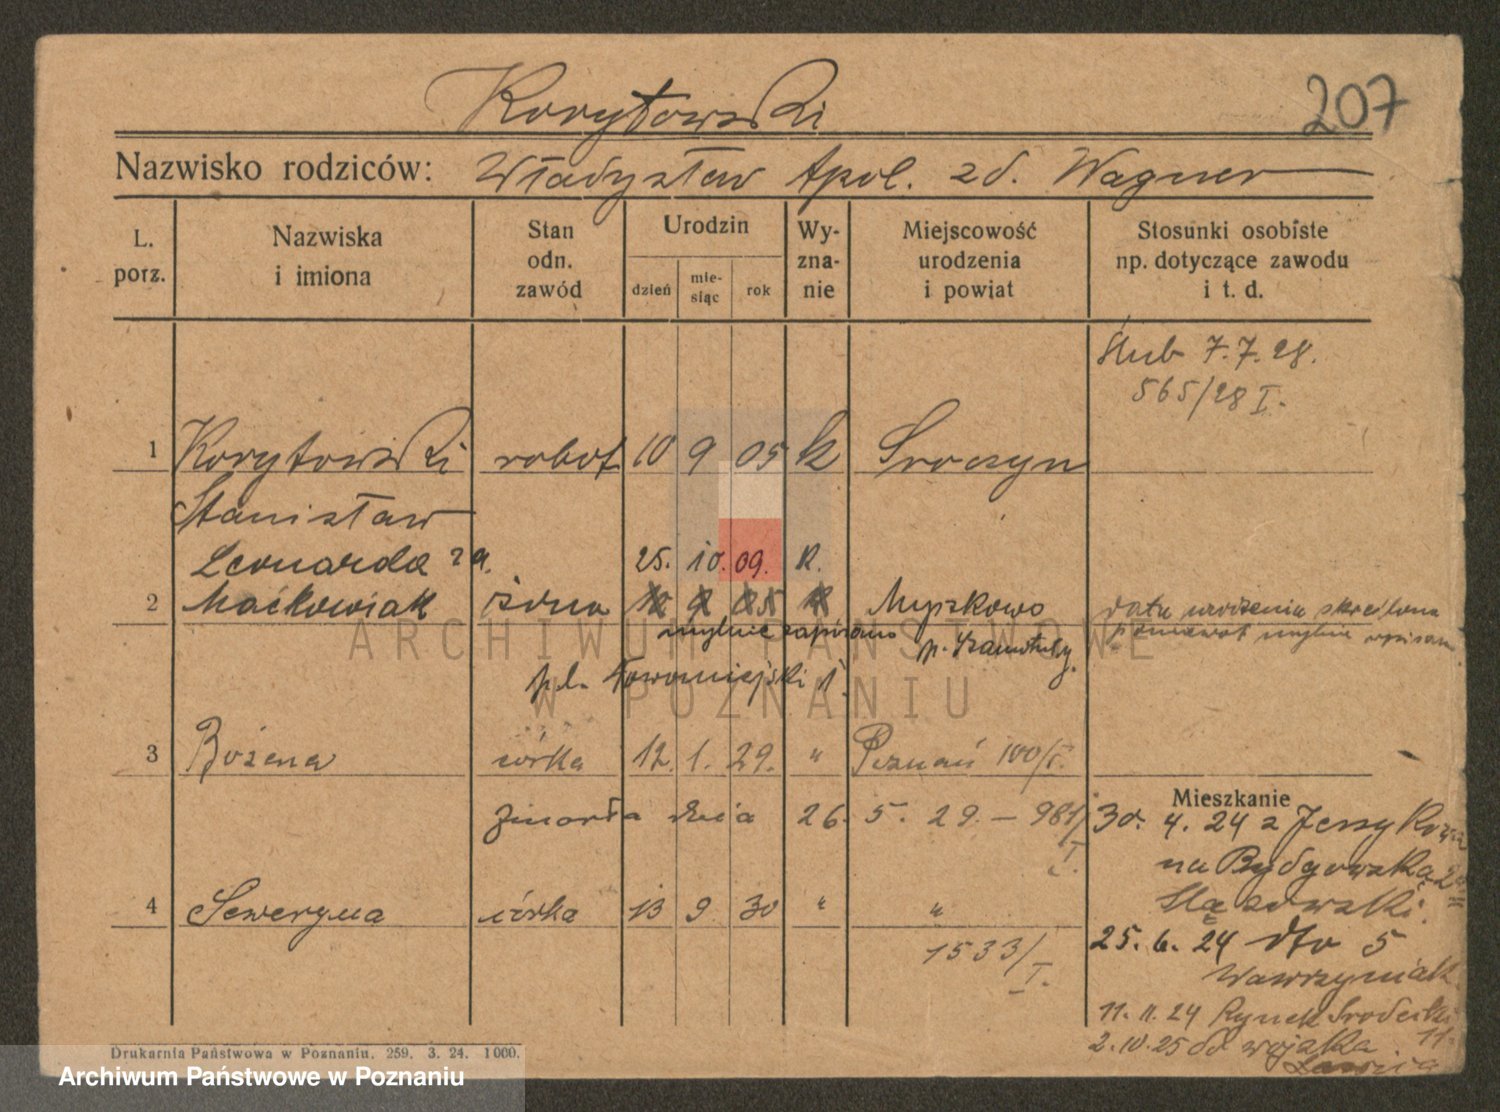 Korytowski
207
Nazwisko rodziców: Władysław Apol. zd. Wagner
L. porz.
Nazwiska i imiona
Stan odn. zawód
Urodzin
dzień
mie- siąc
rok
Wy- zna- nie
Miejscowość urodzenia i powiat
Stosunki osobiste np. dotyczące zawodu i t. d.
Ślub 7.7.28.
565/28 I.
1 Korytowski robot 10 9 05 k Sroczyn
Stanisław
Leonarda 25. 10. 09. k.
2 Maćkowiak żona 10 9 05 k Myszkowo data urodzenia skreślona
mylnie zapisano p. Szamotuły. ponieważ mylnie wpisan
3 Bożena córka 12. 1. 29. " Poznań 100/I.
zmarła dnia 26. 5. 29. — 981/I.
Mieszkanie
30. 4. 24 z Jerzykowa
na Bydgowską 2
4 Seweryna córka 13 9 30 " "
1533/I.
25. 6. 24 dto 5
Wawrzyniak.
11. 11. 24 Rynek Srodecki 11.
2. 10. 25 do wojska
Drukarnia Państwowa w Poznaniu. 259. 3. 24. 1000.
ARCHIWUM PAŃSTWOWE
W POZNANIU
Archiwum Państwowe w Poznaniu